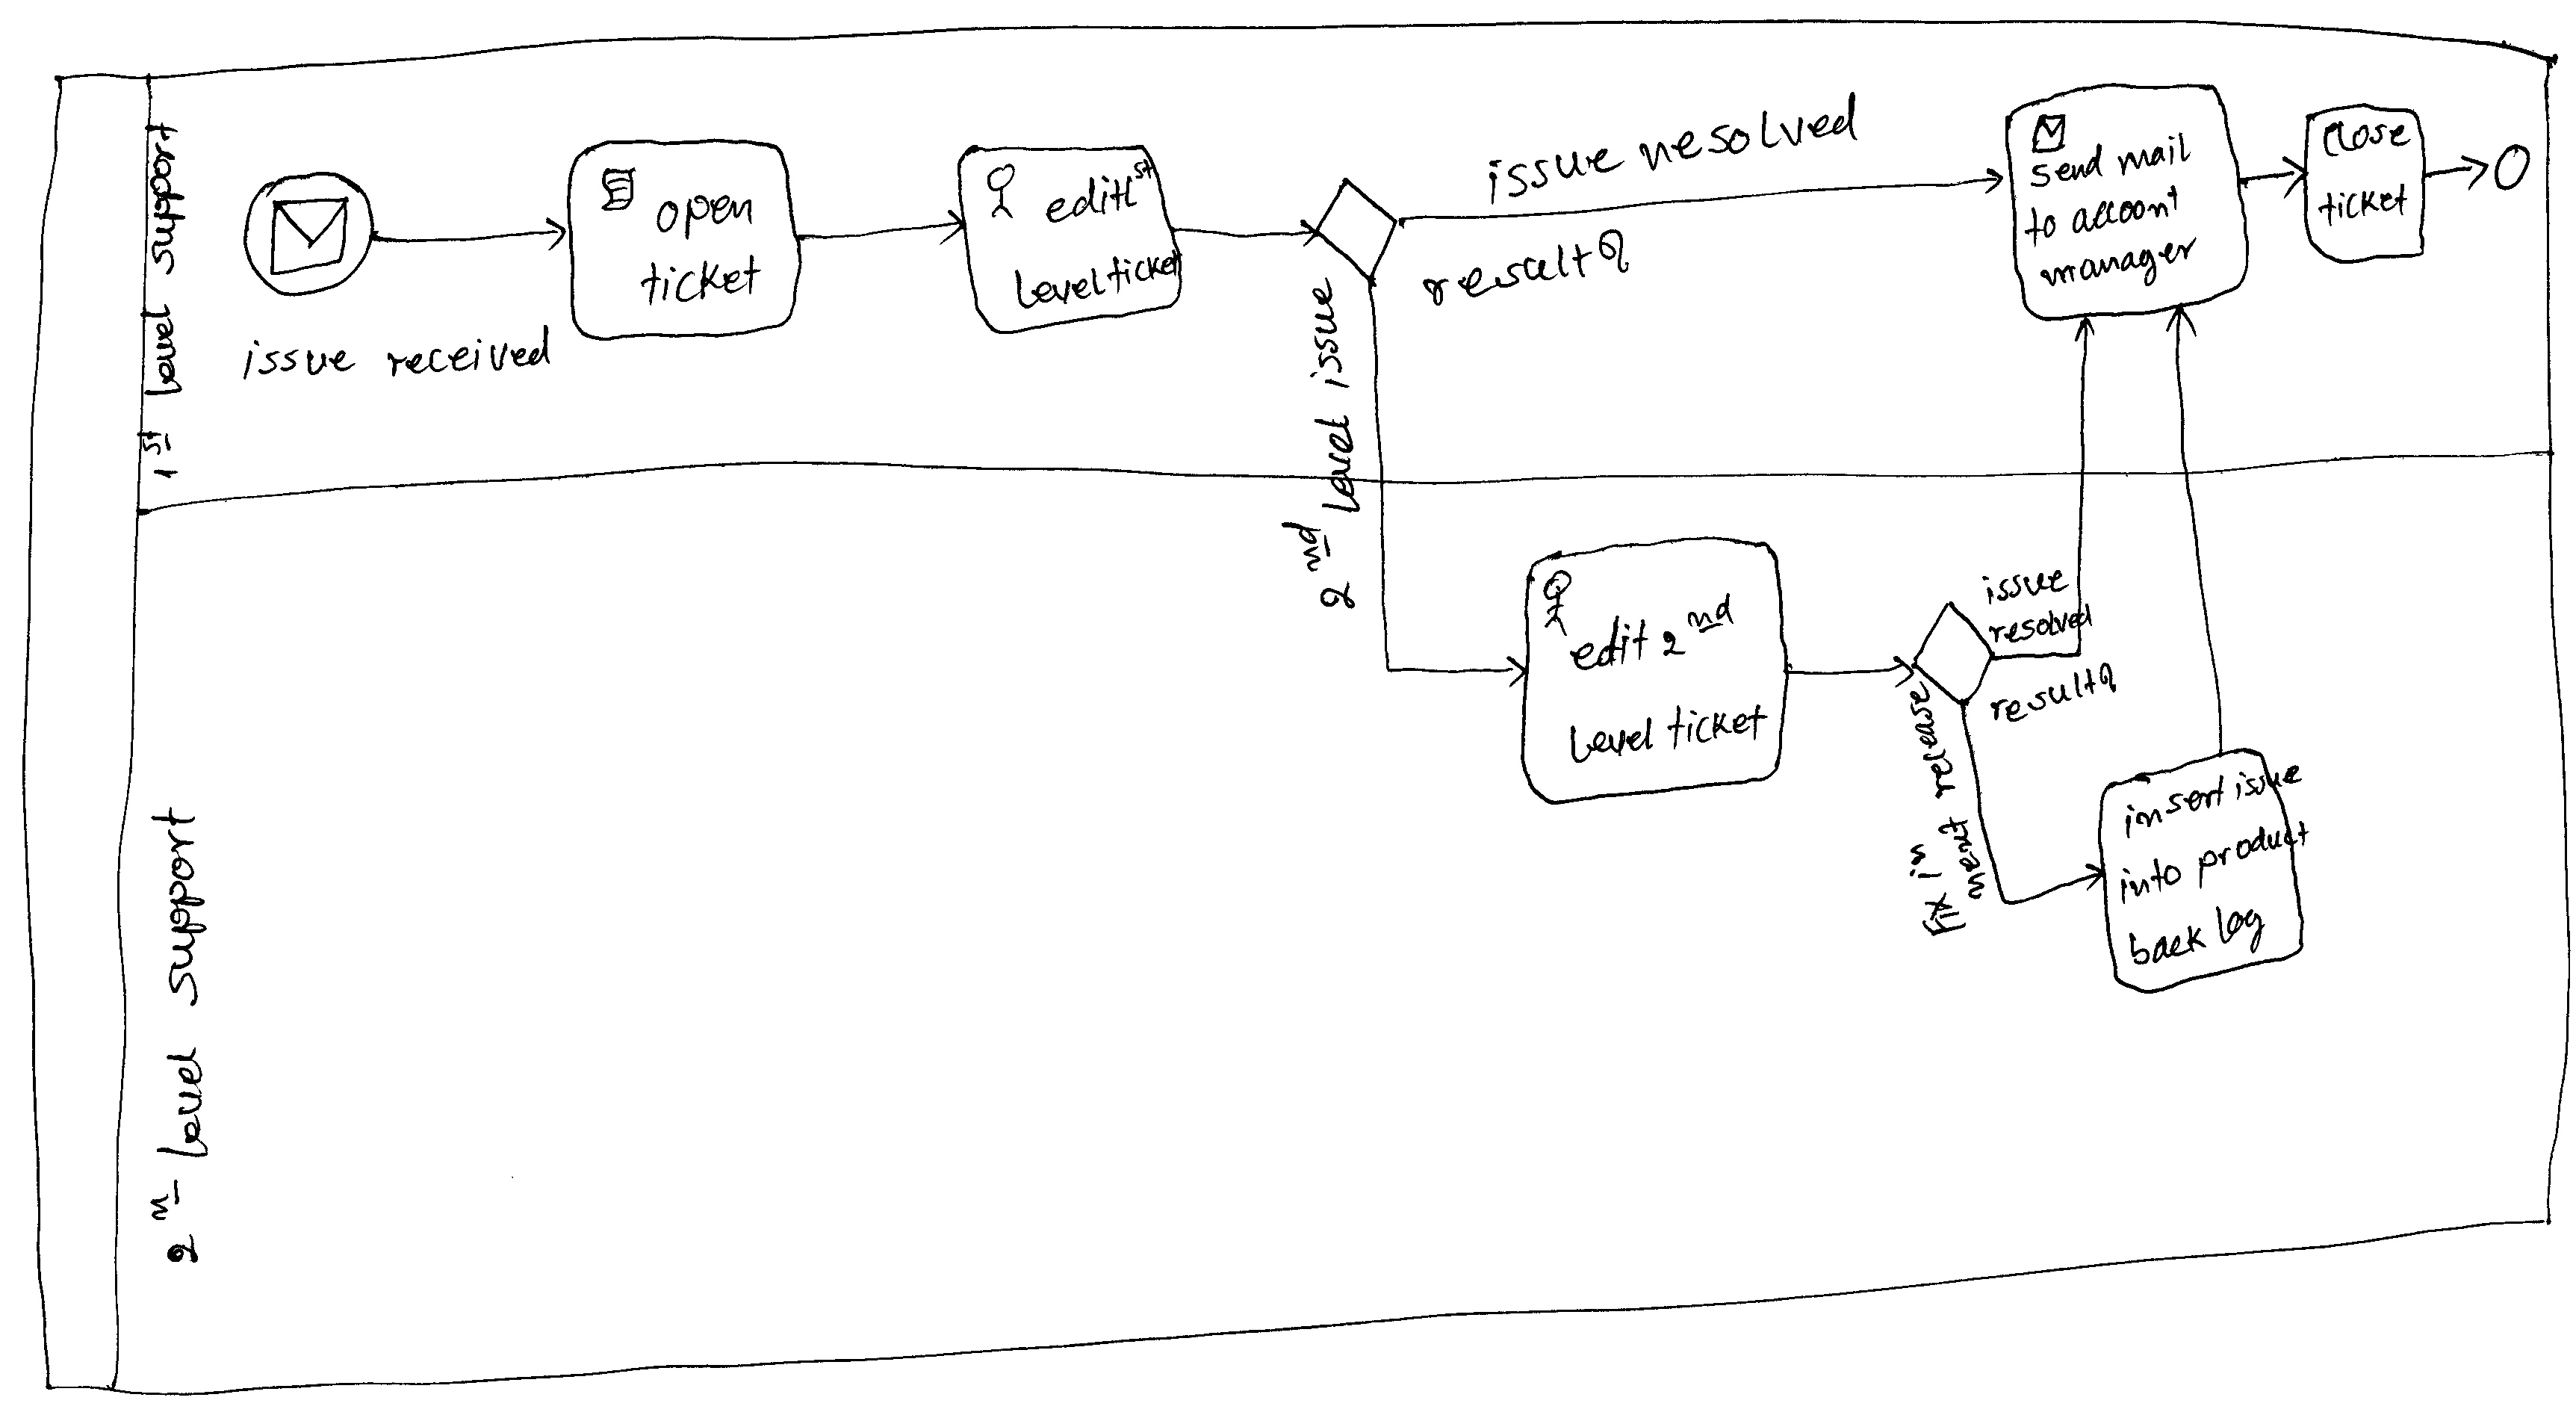 1st level support
issue received
open
ticket
edit 1st
level ticket
issue resolved
result?
2nd level issue
send mail
to account
manager
close
ticket
2n level support
edit 2nd
level ticket
issue
resolved
result?
fix in
next release
insert issue
into product
back log